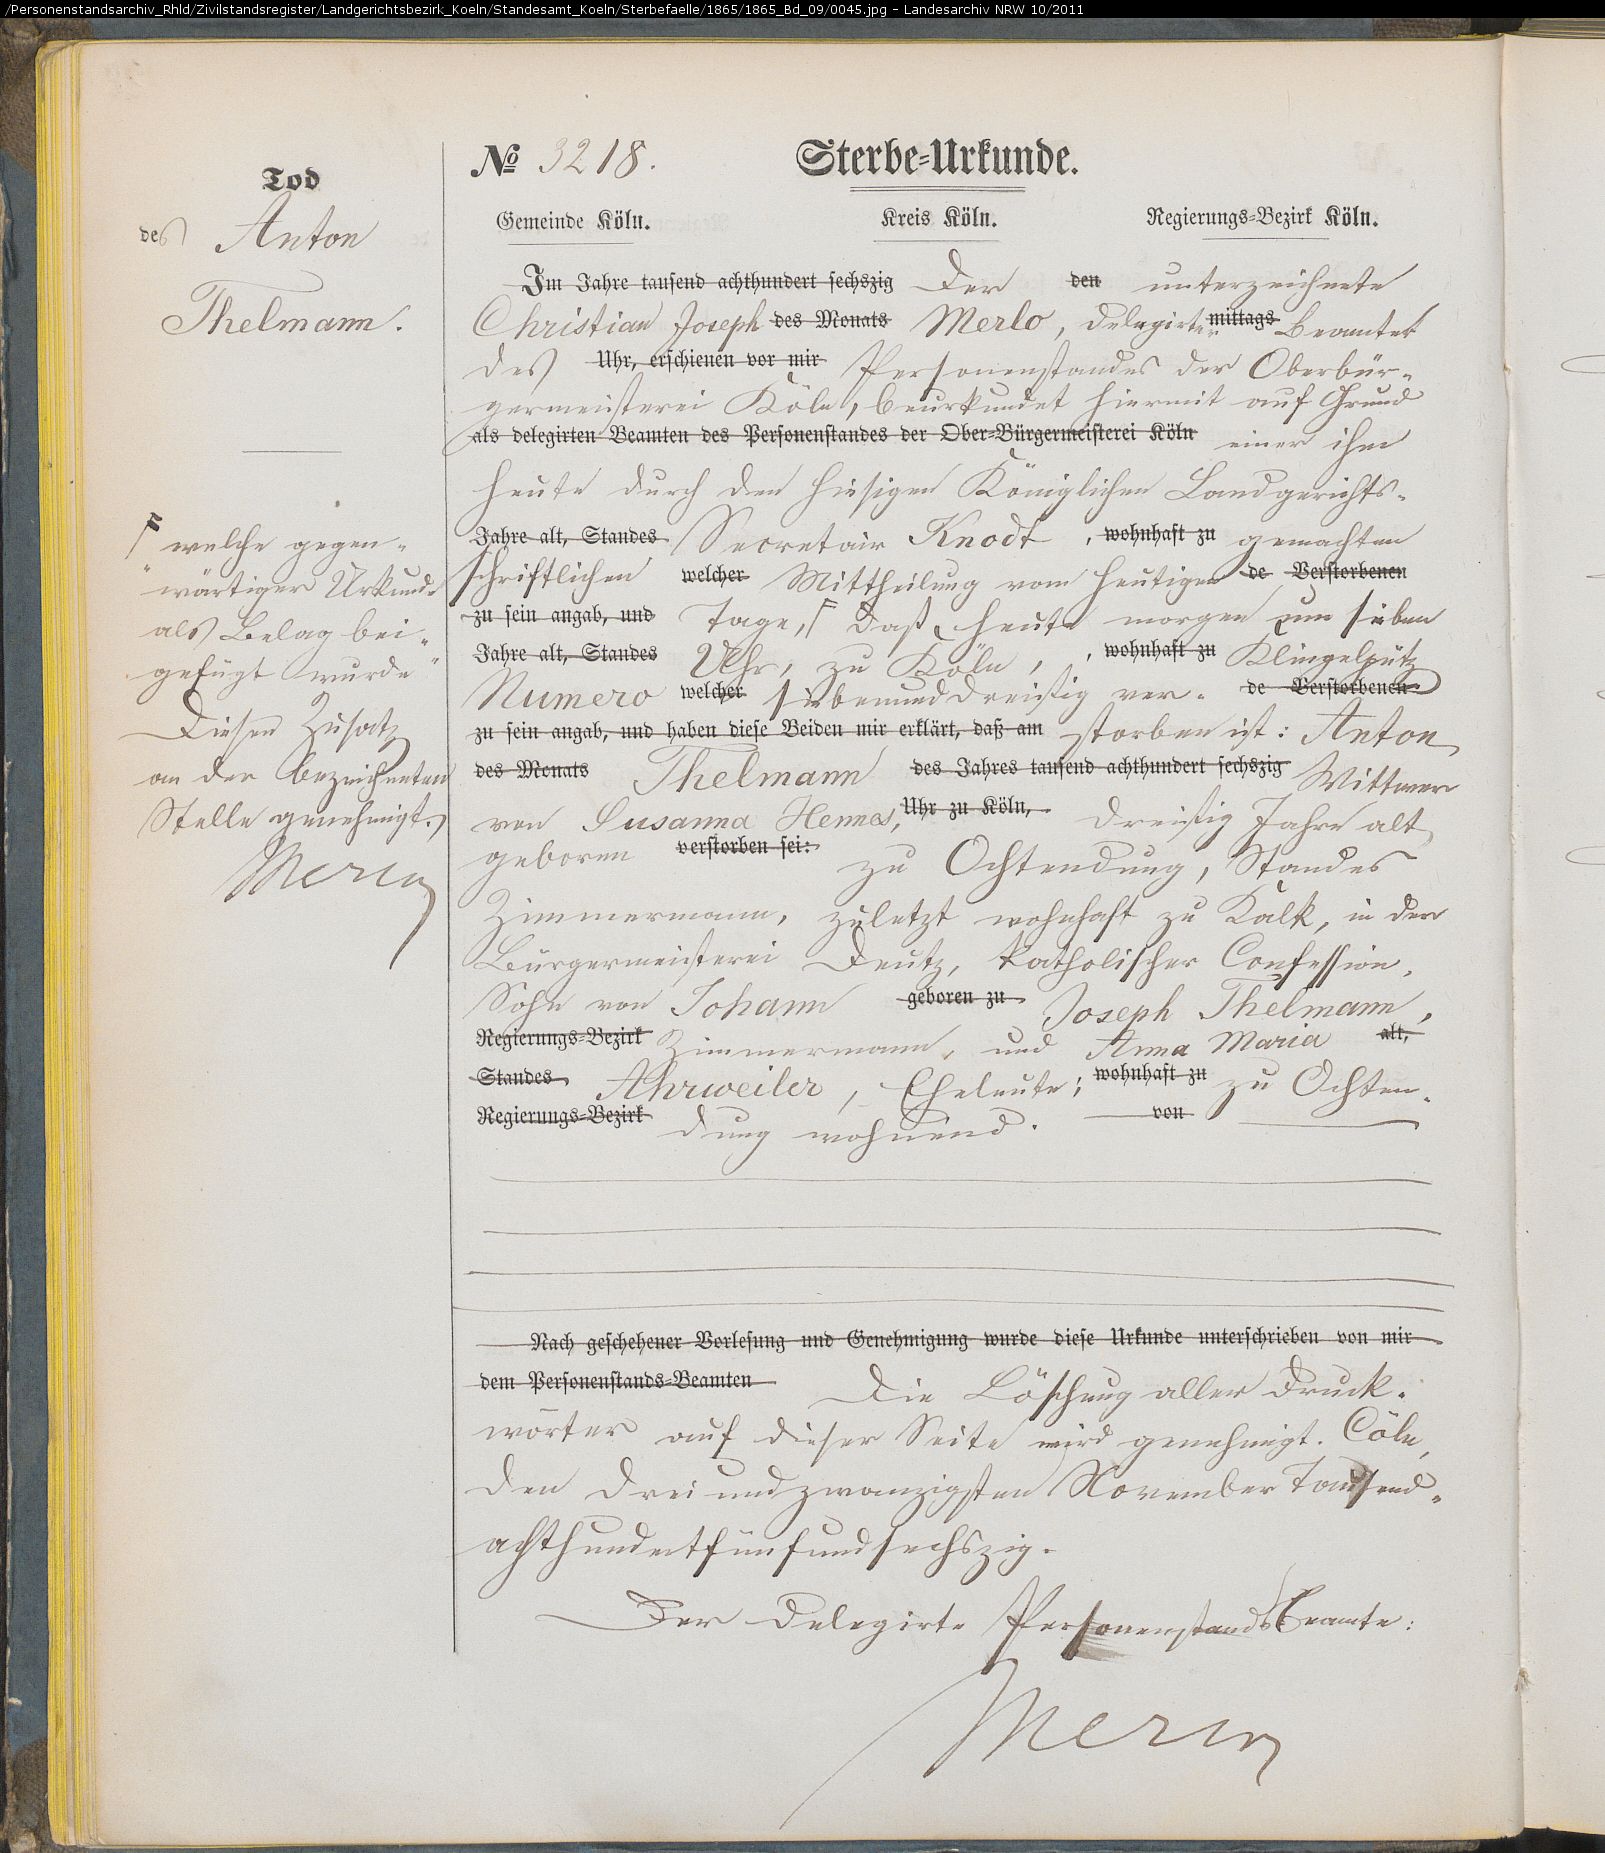 /Personenstandsarchiv_Rhld/Zivilstandsregister/Landgerichtsbezirk_Koeln/Standesamt_Koeln/Sterbefaelle/1865/1865_Bd_09/0045.jpg - Landesarchiv NRW 10/2011
No 3218. Sterbe-Urkunde.
Gemeinde Köln. Kreis Köln. Regierungs-Bezirk Köln.
Tod
des Anton
Thelmann.
"welche gegen-
wärtiger Urkunde
als Belag bei-
gefügt wurde"
Diesen Zusatz
an der bezeichneten
Stelle genehmigt.
Merlo
Im Jahre tausend achthundert sechszig Der den unterzeichnete
Christian Joseph des Monats Merlo, delegirter mittags Beamter
des Uhr, erschienen vor mir Personenstandes der Oberbür-
germeisterei Köln, beurkundet hiermit auf Grund
als delegirten Beamten des Personenstandes der Ober-Bürgermeisterei Köln einer ihm
heute durch den hiesigen Königlichen Landgerichts-
Jahre alt, Standes Secretair Knodt, wohnhaft zu gemachten
schriftlichen welcher Mittheilung vom heutigen de Verstorbenen
zu sein angab, und Tage, daß heute morgen um sieben
Jahre alt, Standes Uhr, zu Köln, wohnhaft zu Klingelpütz
Numero welcher siebenunddreißig ver- de Verstorbenen
zu sein angab, und haben diese Beiden mir erklärt, daß am storben ist: Anton
des Monats Thelmann des Jahres tausend achthundert sechszig Wittwer
von Susanna Hennes, Uhr zu Köln, dreißig Jahre alt,
geboren verstorben sei: zu Ochtendung, Standes
Zimmermann, zuletzt wohnhaft zu Kalk, in der
Bürgermeisterei Deutz, katholischer Confession,
Sohn von Johann geboren zu Joseph Thelmann,
Regierungs-Bezirk Zimmermann, und Anna Maria alt,
Standes Ahrweiler, Eheleute; wohnhaft zu zu Ochten-
Regierungs-Bezirk dung wohnend. von
Nach geschehener Vorlesung und Genehmigung wurde diese Urkunde unterschrieben von mir
dem Personenstands-Beamten Die Löschung aller Druck-
wörter auf dieser Seite wird genehmigt. Cöln,
den dreiundzwanzigsten November Tausend-
achthundertfünfundsechszig.
Der delegirte Personenstandsbeamte:
Merlo